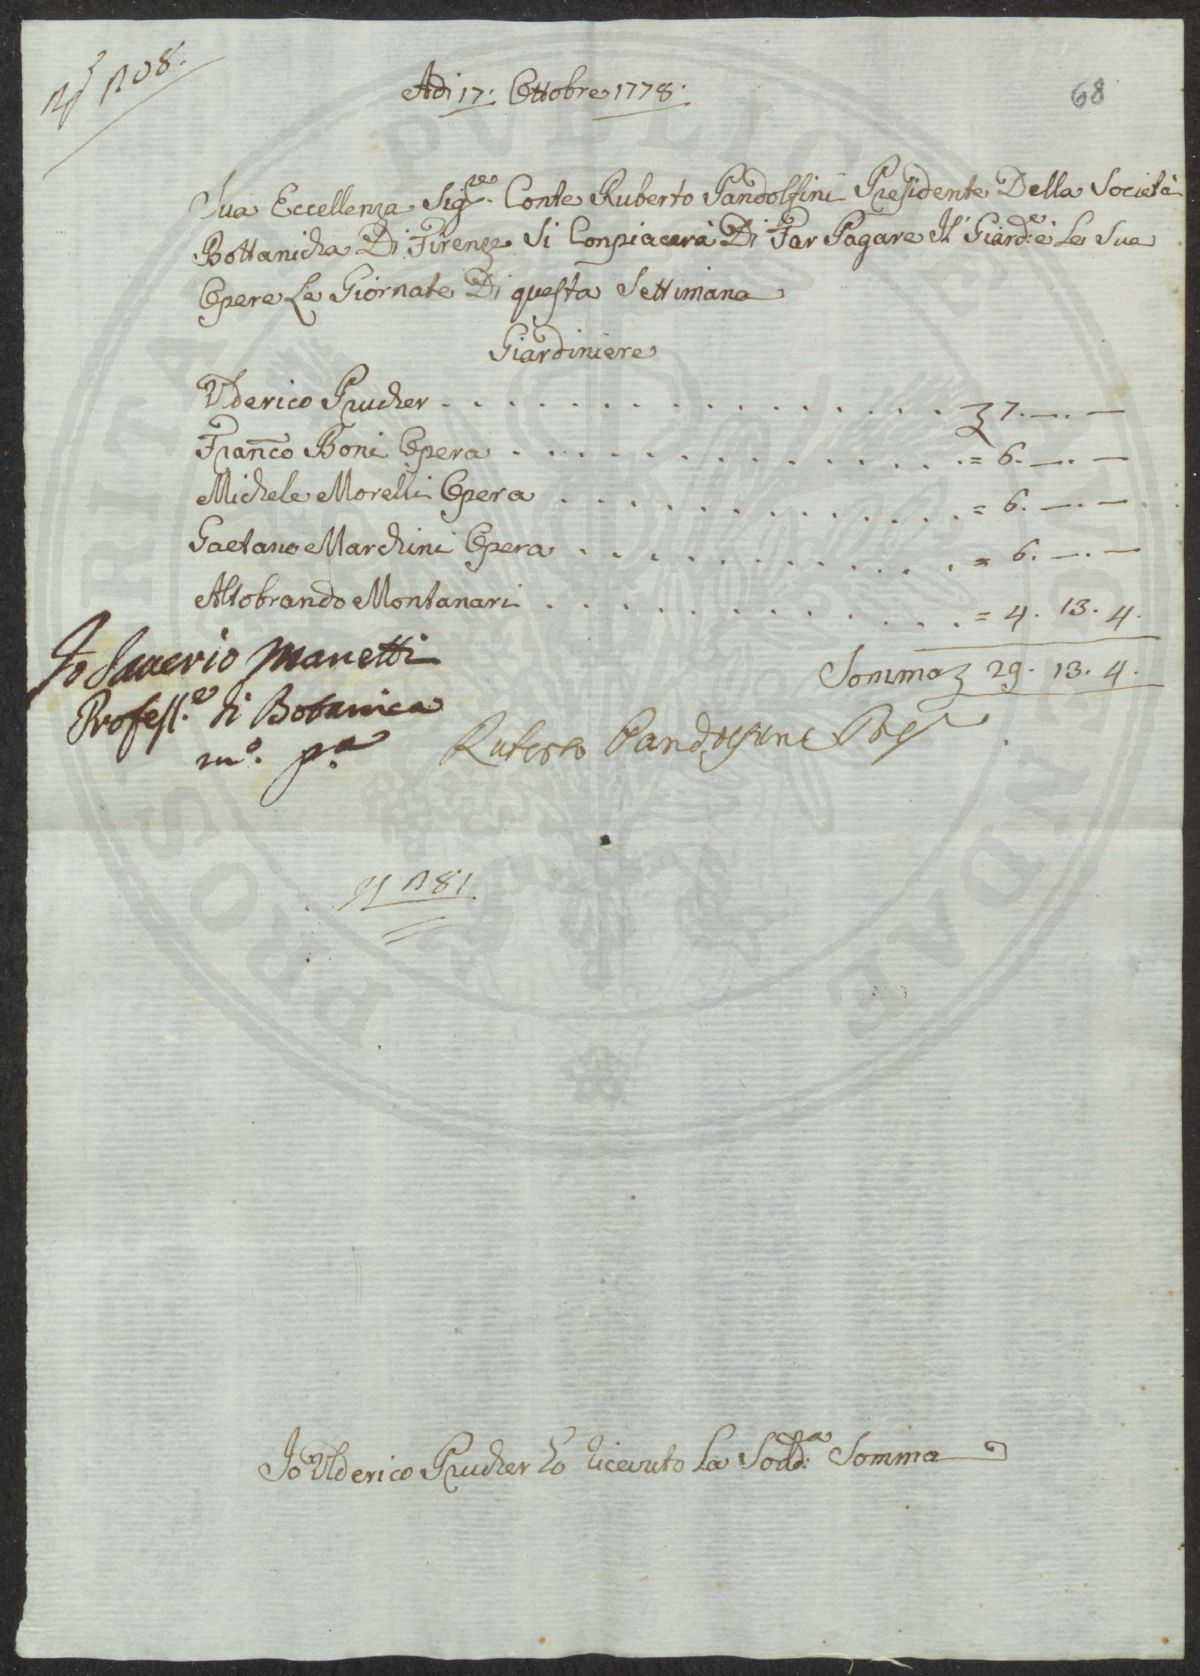 N° 1208.
68
Adi 17. Ottobre 1778.
Sua Eccellenza Sig.re Conte Ruberto Pandolfini Presidente Della Società
Bottanicha Di Firenze Si Conpiacerà Di Far Pagare Il Giard.e è Le Sue
Opere Le Giornate Di questa Settimana
Giardiniere
Ulderico Prucher . . . . . . . . . . . . . . . . . 7. —. —
Franco Boni Opera . . . . . . . . . . . . . = 6. —. —
Michele Morelli Opera . . . . . . . . . . . . = 6. —. —
Gaetano Marchini Opera . . . . . . . . . . . = 6. —. —
Altobrando Montanari . . . . . . . . . . . . = 4. 13. 4.
Somma 29. 13. 4.
Io Saverio Manetti
Profess.e di Botanica
m.o p.a
Ruberto Pandolfini Pres
N 181
Io Ulderico Prucher ho ricevuto La Sodd.a Somma
PUBLICAE
PROSPERITATI